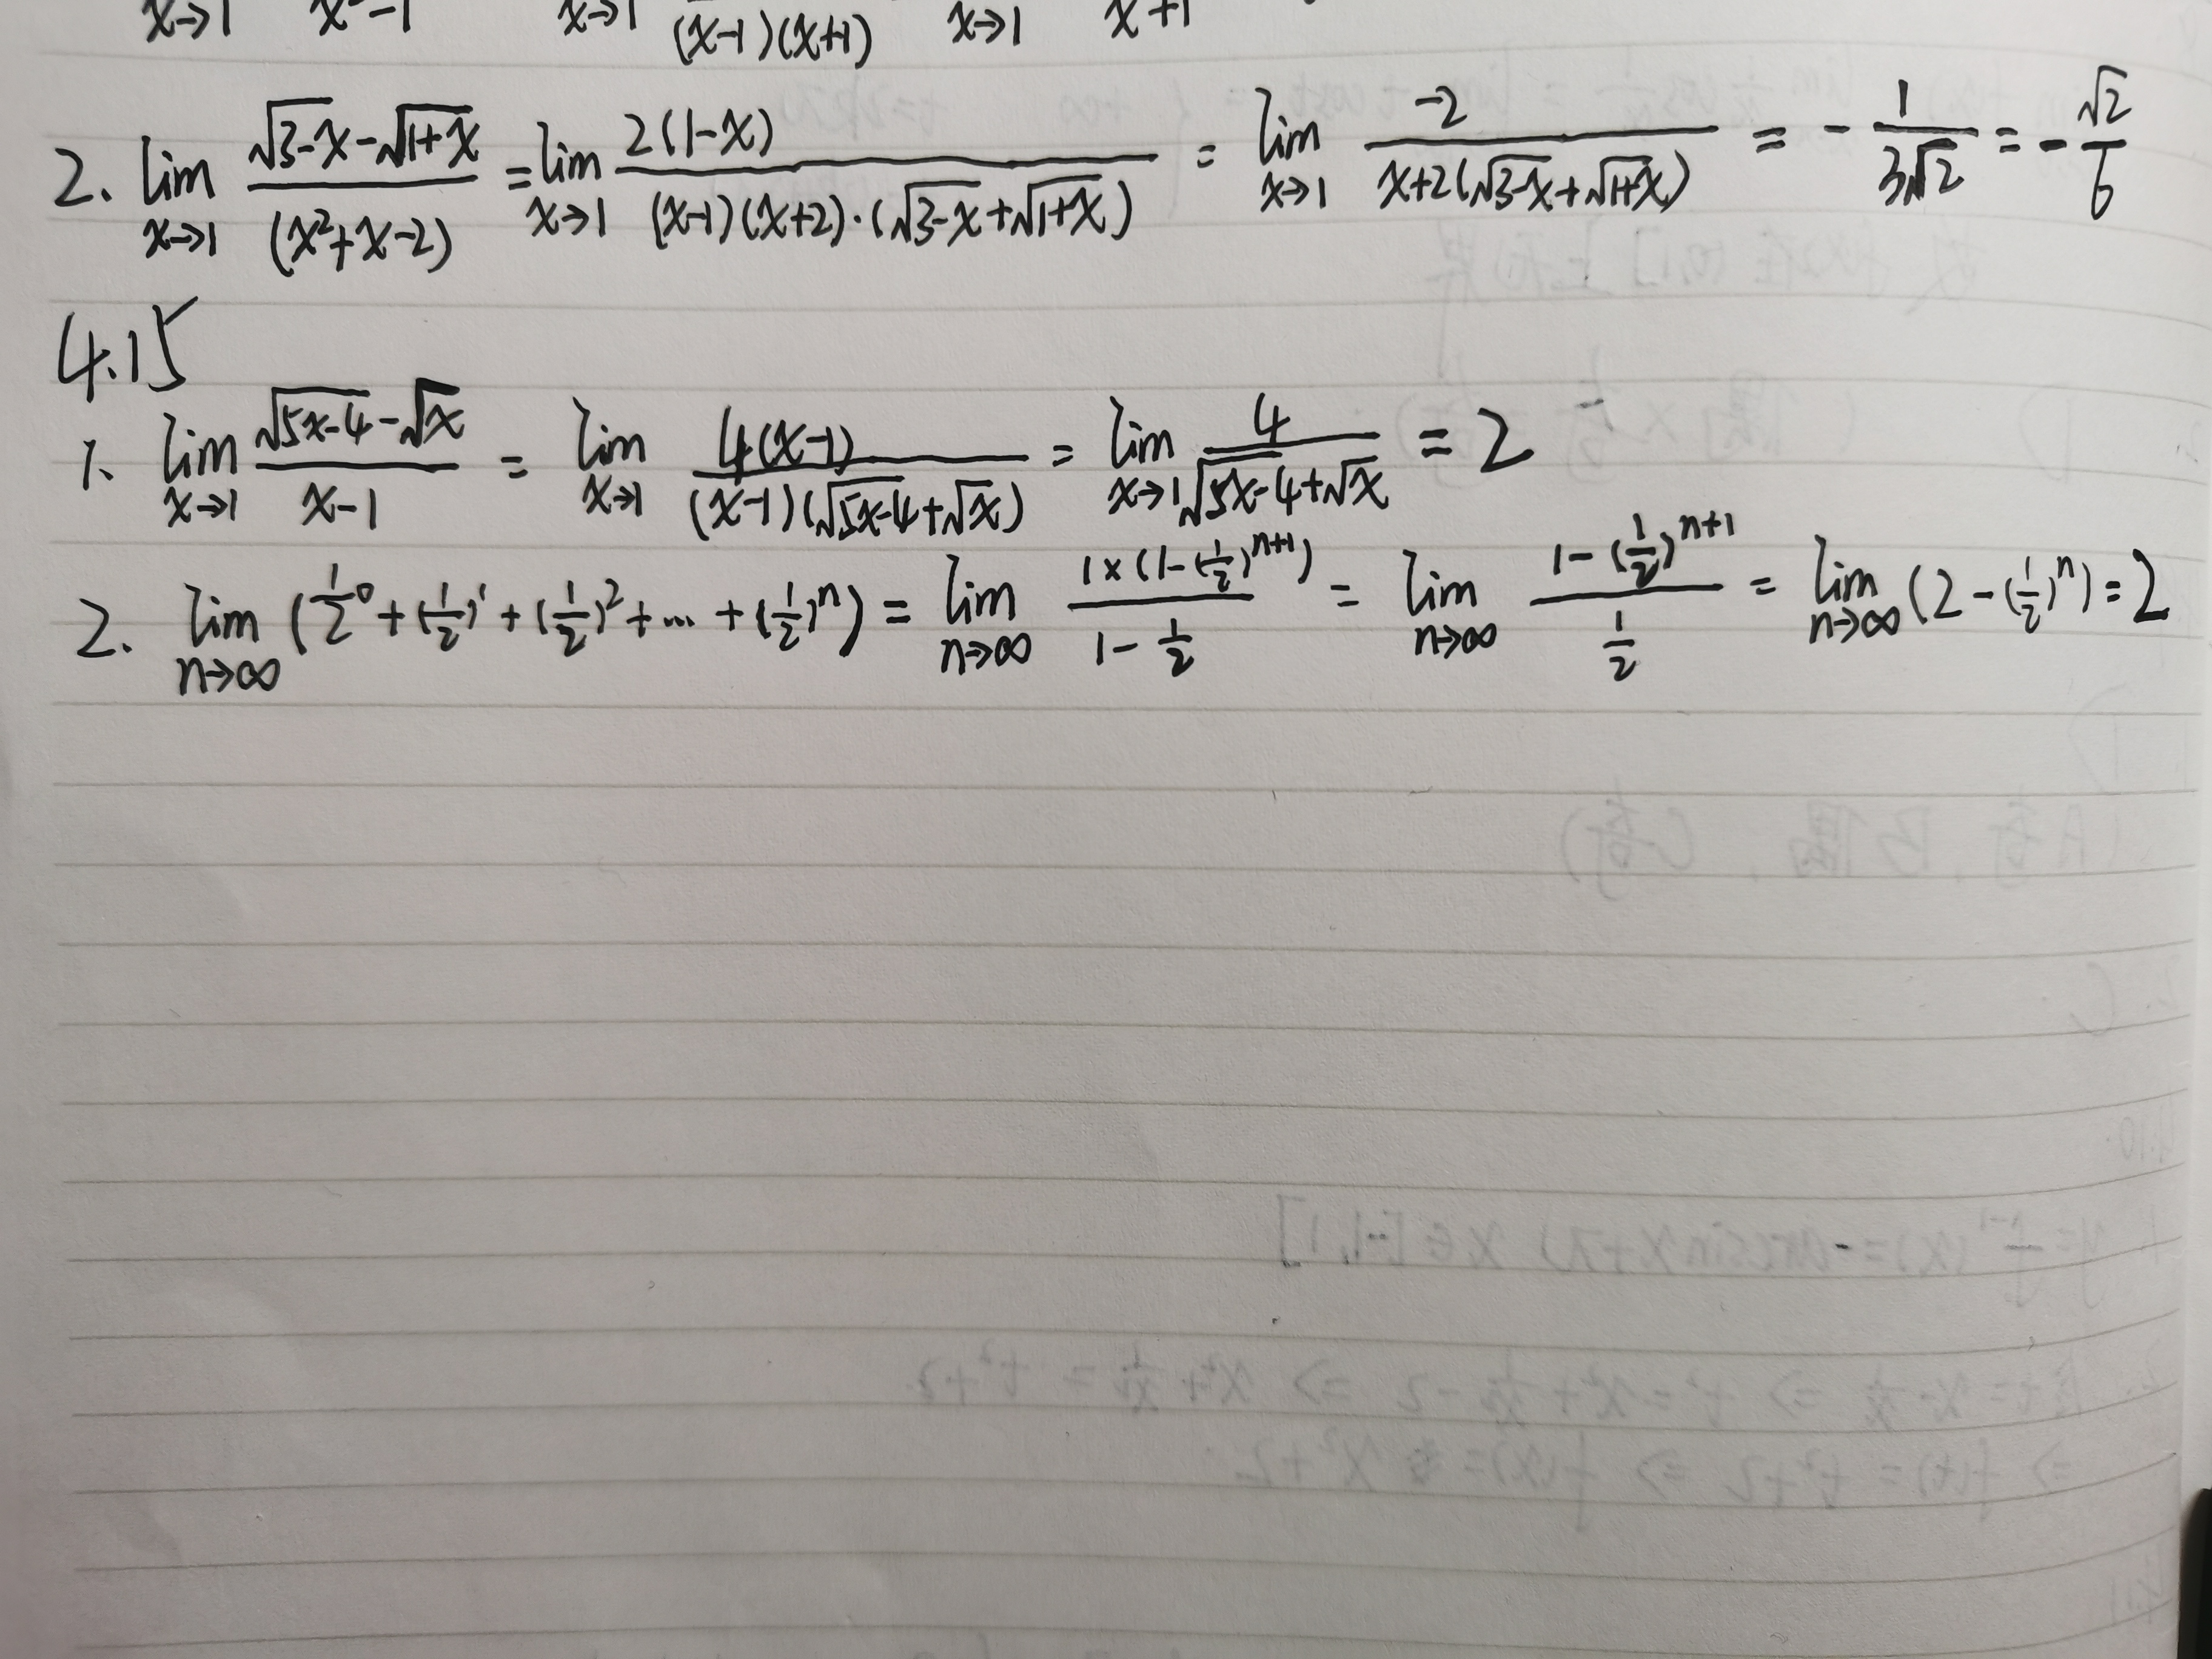 x→1 x²-1 x→1 (x-1)(x+1) x→1 x+1
2. lim x→1 (√(3-x) - √(1+x)) / (x²+x-2) = lim x→1 2(1-x) / ((x-1)(x+2)·(√(3-x)+√(1+x))) = lim x→1 -2 / (x+2(√(3-x)+√(1+x))) = - 1/(3√2) = - √2/6
4.15
1. lim x→1 (√(5x-4) - √x) / (x-1) = lim x→1 4(x-1) / ((x-1)(√(5x-4)+√x)) = lim x→1 4 / (√(5x-4)+√x) = 2
2. lim n→∞ (1/2⁰ + (1/2)¹ + (1/2)² + ... + (1/2)ⁿ) = lim n→∞ (1×(1-(1/2)ⁿ⁺¹)) / (1-1/2) = lim n→∞ (1-(1/2)ⁿ⁺¹) / (1/2) = lim n→∞ (2-(1/2)ⁿ) = 2